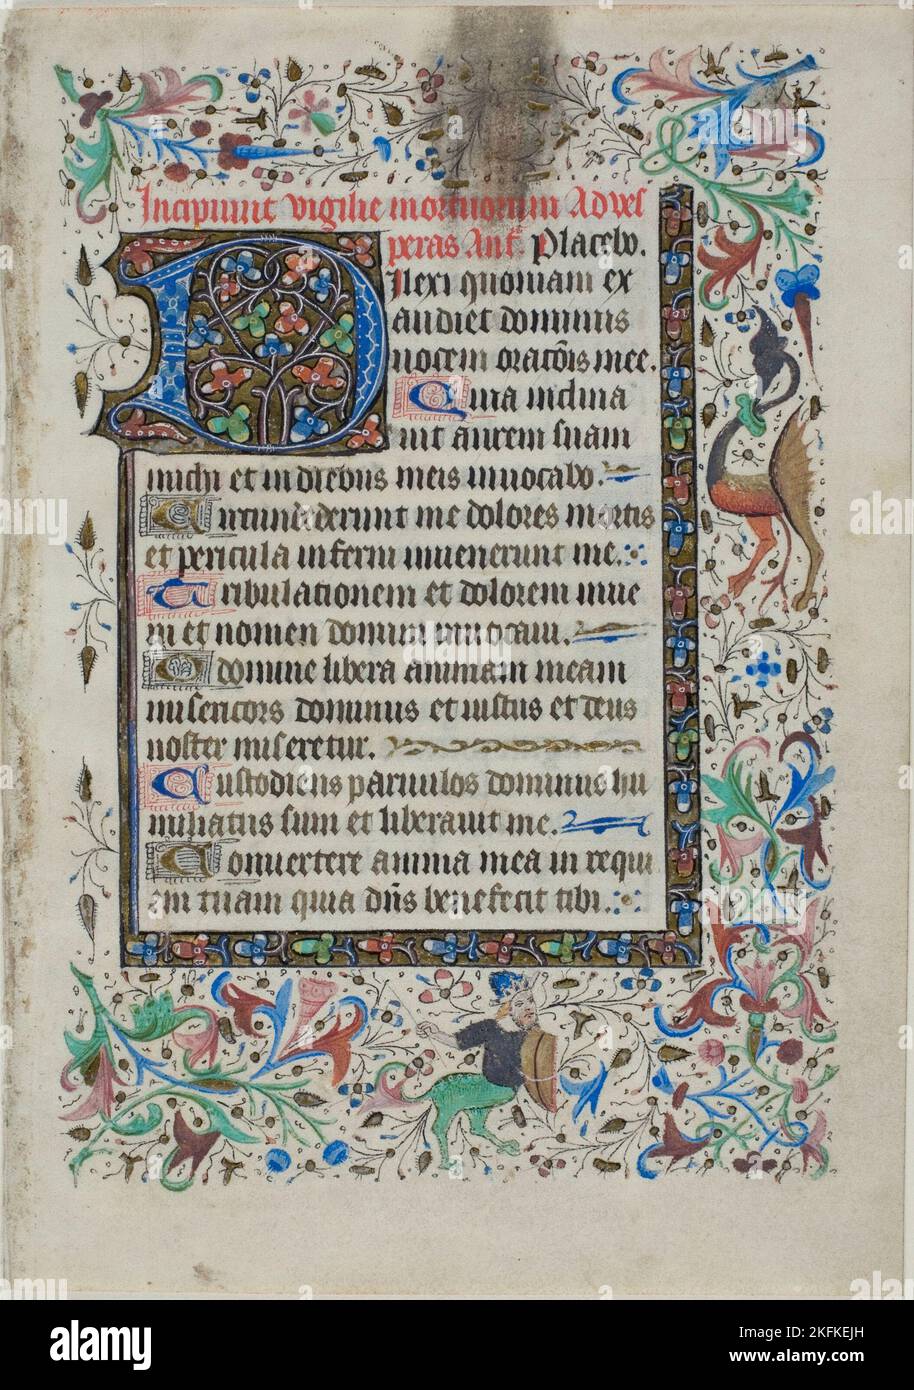 Incipiunt vigilie mortuorum Ad ves
peras Ant̄. Placebo.
Dilexi quoniam ex
audiet dominus
uocem or̄onis mee.
Quia inclina
uit aurem suam
michi et in diebus meis inuocabo.
Circundederunt me dolores mortis
et pericula inferni inuenerunt me.
Tribulationem et dolorem inue
ni et nomen domini inuocaui.
O domine libera animam meam
misericors dominus et iustus et deus
noster miseretur.
Custodiens paruulos dominus hu
miliatus sum et liberauit me.
Conuertere anima mea in requi
em tuam quia dn̄s benefecit tibi.
alamy
Image ID: 2KFKEJH
www.alamy.com